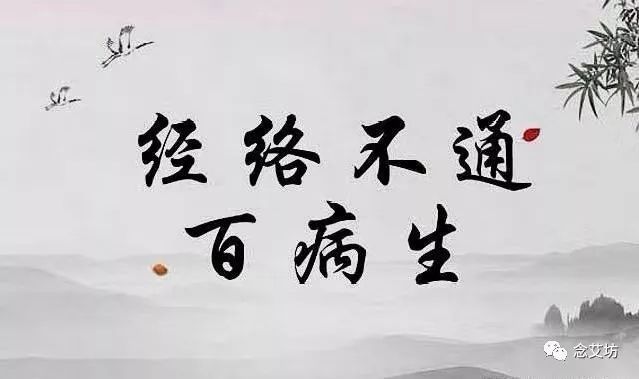 经络不通
百病生
念艾坊